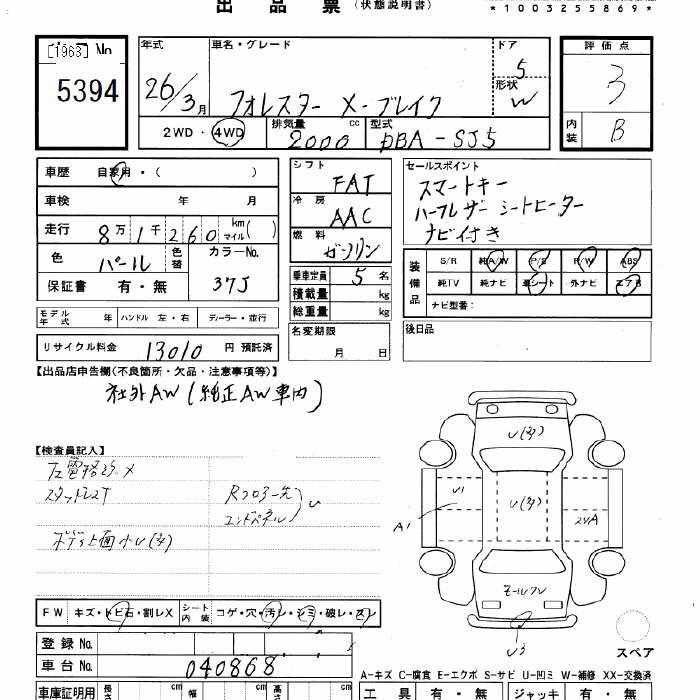 出品票 (状態説明書)
*1003255869*
[1963] No
5394
年式
26/3月
車名・グレード
フォレスター X-ブレイク
ドア
5
形状
W
評価点
3
内装
B
2WD・4WD
排気量 cc
2000
型式
DBA-SJ5
車歴 自家用・( )
車検 年 月
走行 8万1千260 km マイル( )
色 パール 色替
カラーNo.
37J
保証書 有・無
モデル年式 年 ハンドル 左・右 ディーラー・並行
リサイクル料金 13010 円 預託済
シフト
FAT
冷房
AAC
燃料
ガソリン
乗車定員 5 名
積載量 kg
総重量 kg
名変期限
月 日
セールスポイント
スマートキー
ハーフレザー シートヒーター
ナビ付き
装備品
S/R 純A/W P/S P/W ABS
純TV 純ナビ 革シート 外ナビ エアB
ナビ型番:
後日品
【出品店申告欄(不良箇所・欠品・注意事項等)】
社外AW(純正AW車内)
【検査員記入】
左電格ミラーメ
スタットレスT
Rフロアー先
エンドパネル
U
ボディ上面小U(多)
FW キズ・トビ石・割レX シート内装 コゲ・穴・汚レ・シミ・破レ・スレ
登録No.
車台No. 040868
車庫証明用 長さ cm 幅 cm 高さ cm
U(多)
U1
A1
U(多)
2UA
モールワレ
U3
スペア
A-キズ C-腐食 E-エクボ S-サビ U-凹ミ W-補修 XX-交換済
工具 有・無 ジャッキ 有・無